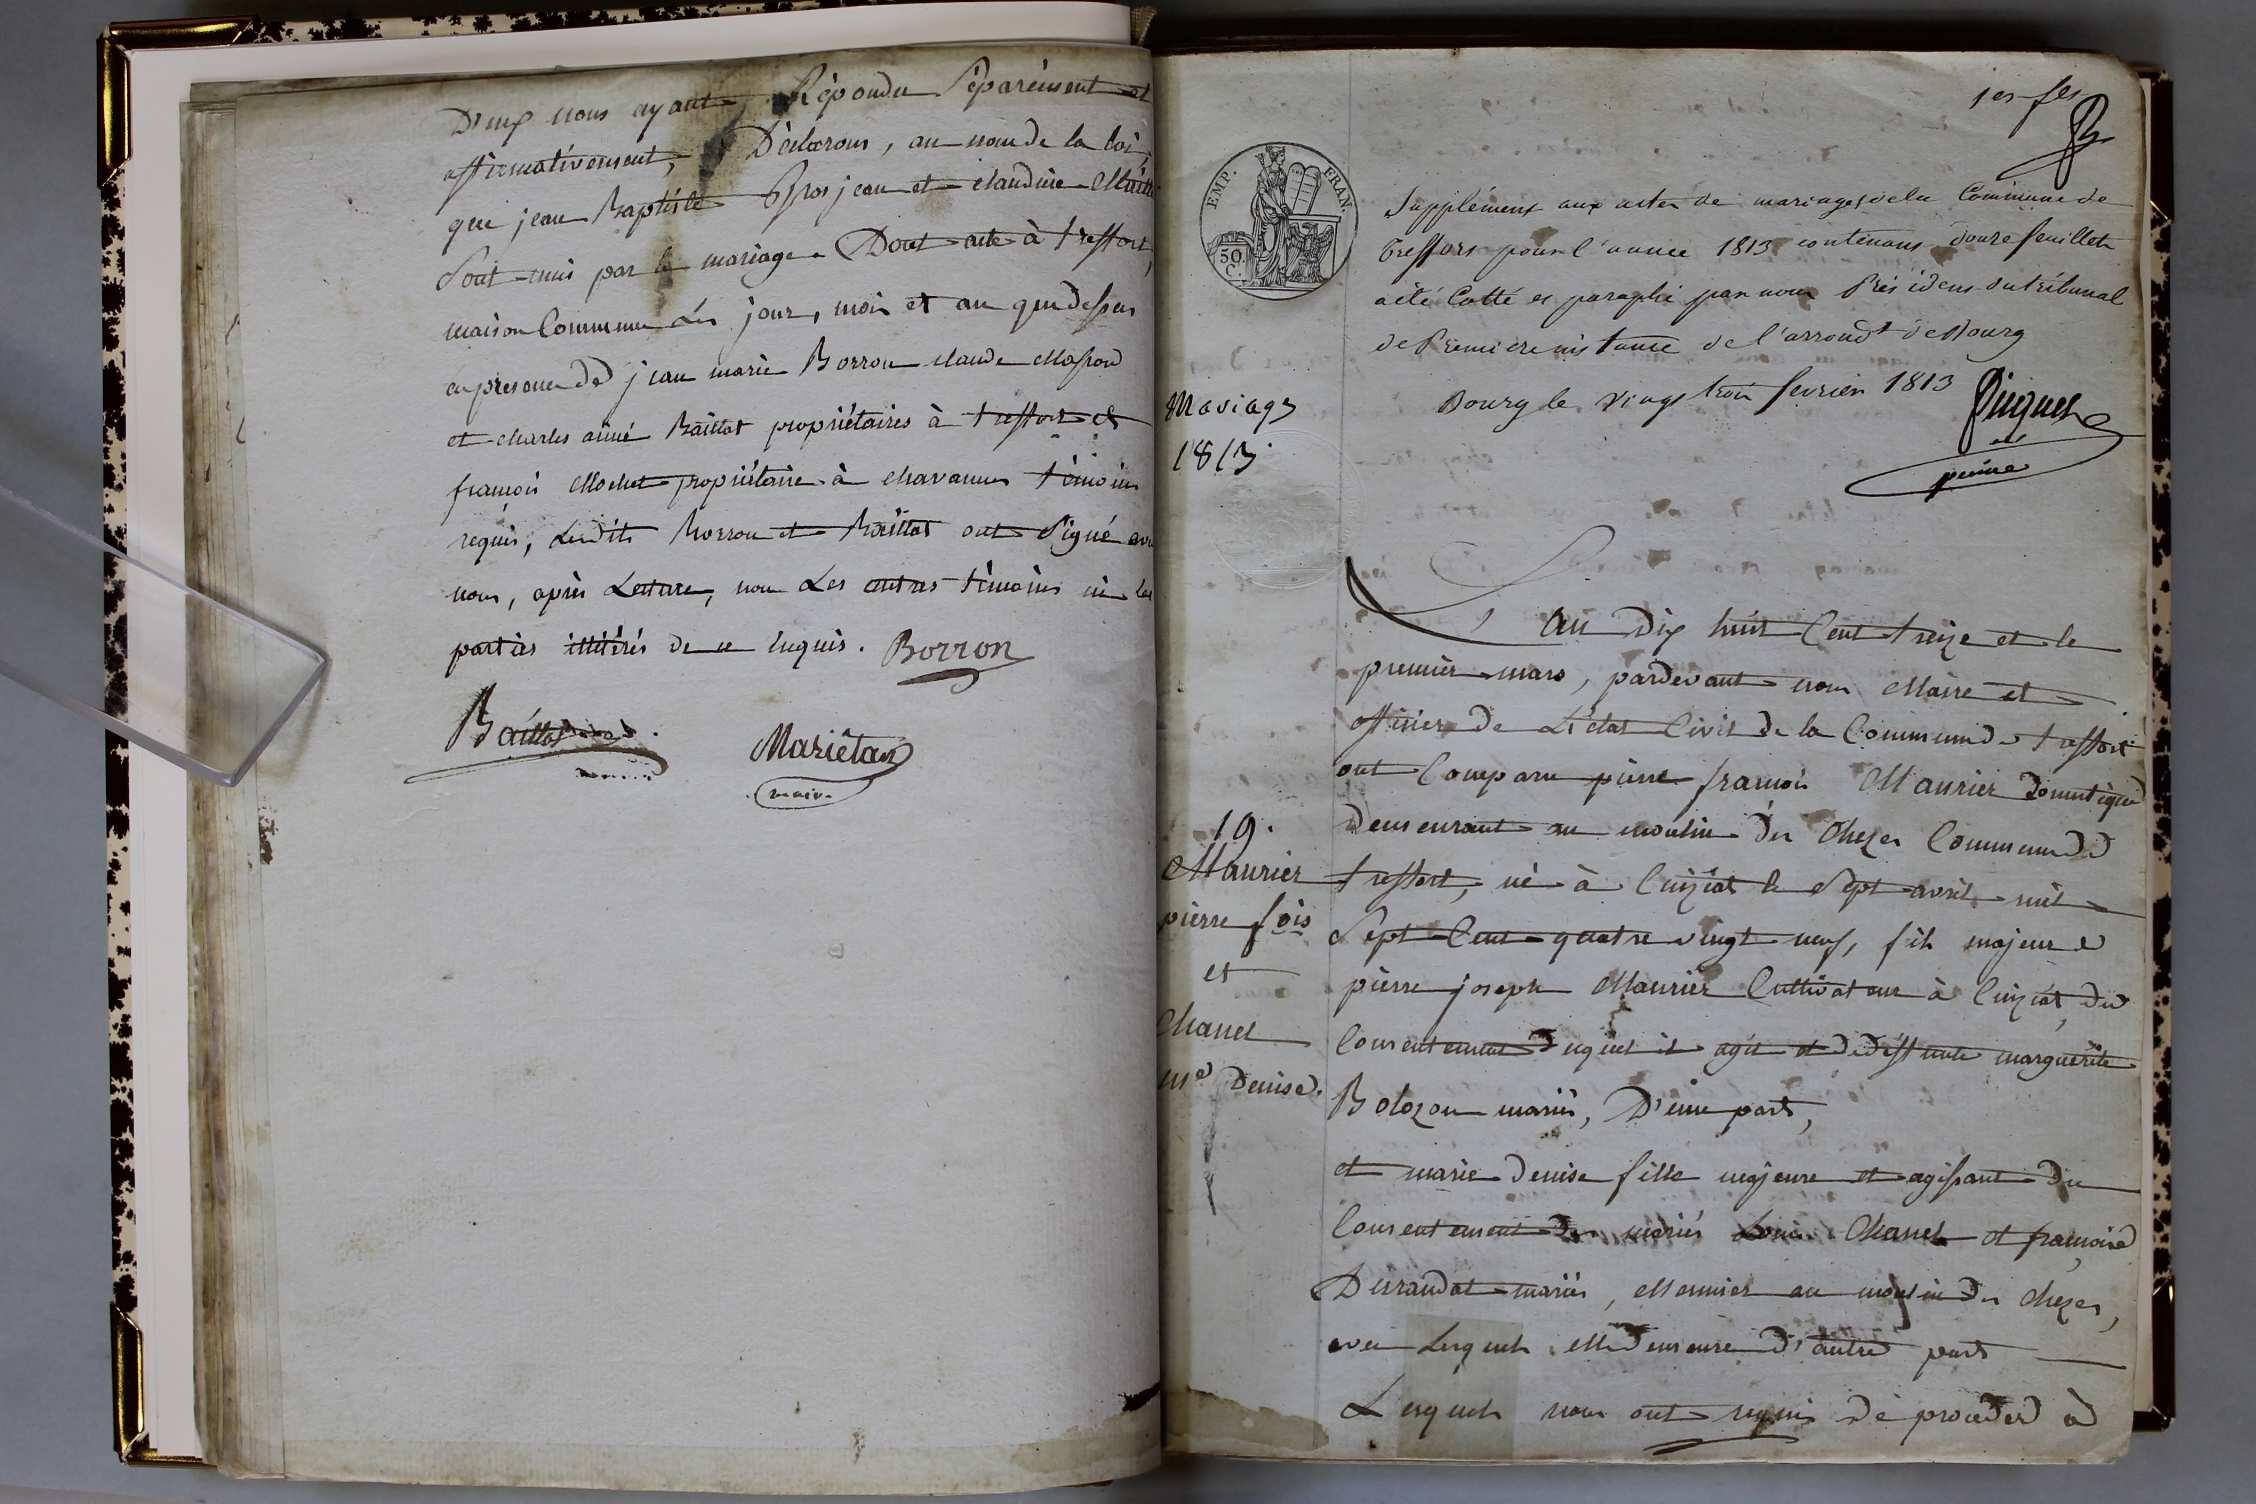 D'eux nous ayant Répondu Séparément et
affirmativement, Déclarons, au nom de la loi,
que jean Baptiste Grosjean et claudine
Sont unis par le mariage. Dont acte à treffort,
maison Commune Les jour, mois et an que dessus
en presence de jean marie Borron claude Masson
et charles aimé Baillat propriétaires à treffort et
françois Mochet propriétaire à chavannes témoins
requis, Lesdits Borron et Baillat ont Signé avec
nous, après Lecture, non Les autres témoins ni les
parties illitérés de ce Enquis. Borron
Baillat
Mariétan
maire
1er fet
EMP. FRAN.
50 C.
Supplément aux actes de mariages de la Commune de
Treffort pour l'année 1813 contenant douze feuillets
a été Cotté et paraphé par nous Président du tribunal
de Première instance de l'arrondt de Bourg
Bourg le vingt trois fevrier 1813
Mariages
1813.
L'an dix huit Cent treize et le
premier mars, pardevant nous Maire et
officier de L'état Civil de la Commune de treffort
ont Comparu pierre françois Maurier domestique
demeurant au moulin des Chezes Commune de
treffort, né à Cuiziat le Sept avril mil
Sept Cent quatre vingt neuf, fils majeur de
pierre joseph Maurier Cultivateur à Cuiziat, du
Consentement duquel il agit et de défunte marguerite
Bolozon mariés, D'une part,
et marie Denise fille majeure et agissant du
Consentement des mariés Louis Chanel et françoise
Durandat mariés, Meunier au moulin des Chezes,
avec Lesquels elle demeure d'autre part
Lesquels nous ont requis de proceder à
19.
Maurier
pierre fois
et
Chanel
me Denise.